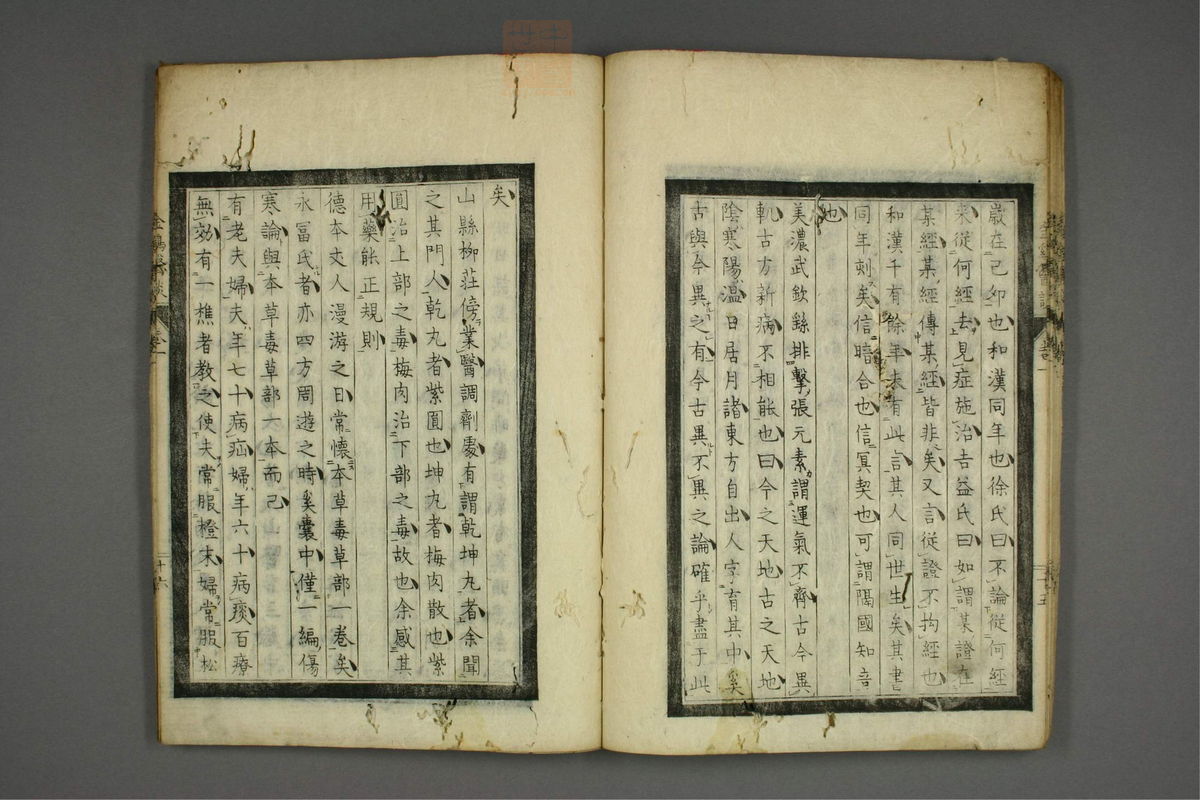 歳在己卯也和漢同年也徐氏曰不論従何經
来従何經去見症施治吉益氏曰如謂某證在
某經某經傳某經皆非矣又言従證不拘經也
和漢千有餘年未有此言其人同世生矣其書
同年刻矣信暗合也信冥契也可謂隔國知音
也
美濃武欽繇排擊張元素謂運氣不齊古今異
軌古方新病不相能也曰今之天地古之天地
陰寒陽温日居月諸東方自出人字育其中奚
古與今異之有今古異不異之論確乎盡于此
十五
矣
山縣柳荘傍業醫調劑處有謂乾坤九者余聞
之其門人乾九者紫圓也坤九者梅肉散也紫
圓治上部之毒梅肉治下部之毒故也余感其
用藥能正規則
德本丈人漫游之日常懷本草毒草部一卷矣
永冨氏者亦四方周遊之時奚囊中僅一編傷
寒論與本草毒草部六本而已
有老夫婦夫年七十病疝婦年六十病痰百療
無効有一樵者教之使夫常服橙末婦常服松
十六